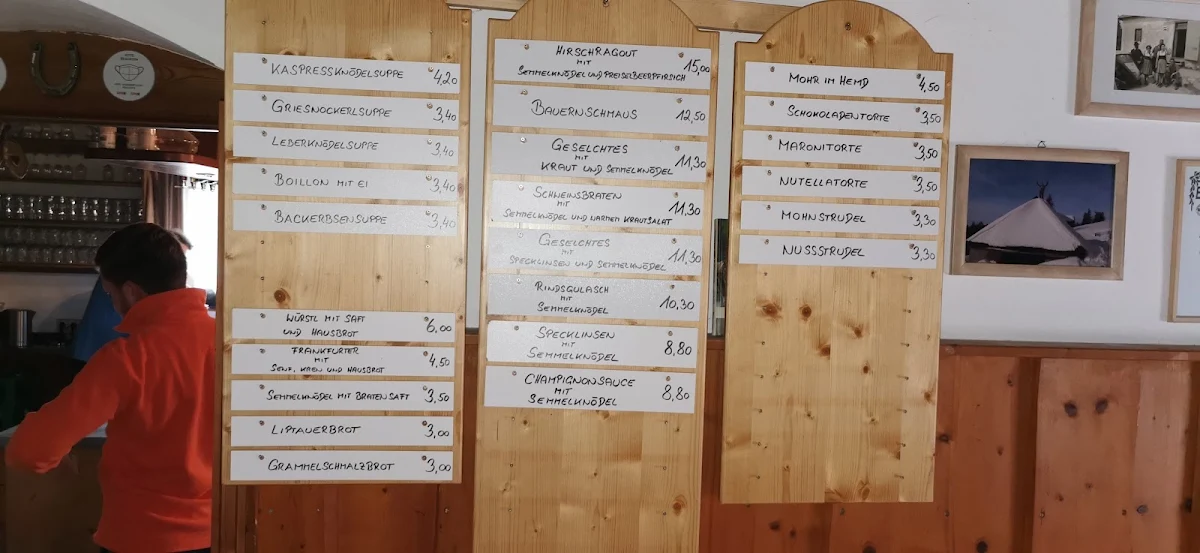 KASPRESSKNÖDELSUPPE € 4,20
GRIESNOCKERLSUPPE € 3,40
LEBERKNÖDELSUPPE € 3,40
BOILLON MIT EI € 3,40
BACKERBSENSUPPE € 3,40
WÜRSTL MIT SAFT
UND HAUSBROT € 6,00
FRANKFURTER
MIT
SENF, KREN UND HAUSBROT € 4,50
SEMMELKNÖDEL MIT BRATENSAFT € 3,50
LIPTAUERBROT € 3,00
GRAMMELSCHMALZBROT € 3,00
HIRSCHRAGOUT
MIT
SEMMELKNÖDEL UND PREISELBEERPFIRSICH € 15,00
BAUERNSCHMAUS € 12,50
GESELCHTES
MIT
KRAUT UND SEMMELKNÖDEL € 11,30
SCHWEINSBRATEN
MIT
SEMMELKNÖDEL UND WARMEN KRAUTSALAT € 11,30
GESELCHTES
MIT
SPECKLINSEN UND SEMMELKNÖDEL € 11,30
RINDSGULASCH
MIT
SEMMELKNÖDEL € 10,30
SPECKLINSEN
MIT
SEMMELKNÖDEL € 8,80
CHAMPIGNONSAUCE
MIT
SEMMELKNÖDEL € 8,80
MOHR IM HEMD € 4,50
SCHOKOLADENTORTE € 3,50
MARONITORTE € 3,50
NUTELLATORTE € 3,50
MOHNSTRUDEL € 3,30
NUSSSTRUDEL € 3,30